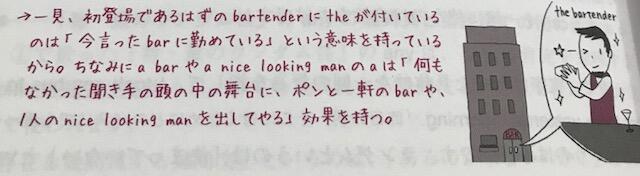 →一見、初登場であるはずのbartenderにtheが付いている
のは「今言ったbarに勤めている」という意味を持っている
から。ちなみにa barやa nice looking manのaは「何も
なかった聞き手の頭の中の舞台に、ポンと一軒のbarや、
1人のnice looking manを出してやる」効果を持つ。
the bartender
BAR